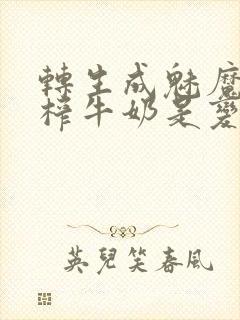 轉生成魅魔
榨牛奶是變
英兒笑春風